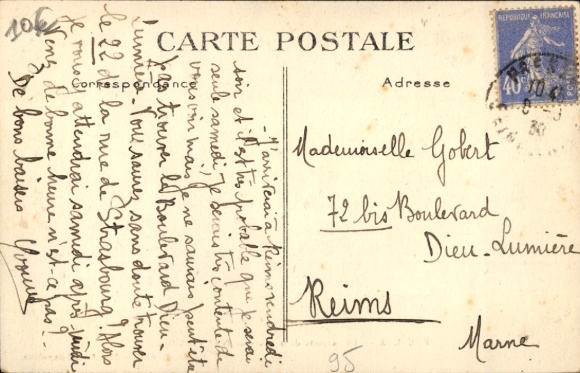 10€
CARTE POSTALE
Correspondance
Adresse
REPUBLIQUE FRANÇAISE
40
J'arriverai à Reims vendredi
soir et il est très probable que je serai
seule samedi. Je serais très contente de
vous voir mais je ne saurais peut-être
pas trouver le Boulevard Dieu-
Lumière. Vous saurez sans doute trouver
le 22 de la rue de Strasbourg? Alors
je vous attendrai samedi après midi
Venez de bonne heure n'est-ce pas?
De bons baisers Yvonne
Mademoiselle Gobert
72 bis Boulevard
Dieu-Lumière
Reims
Marne
95